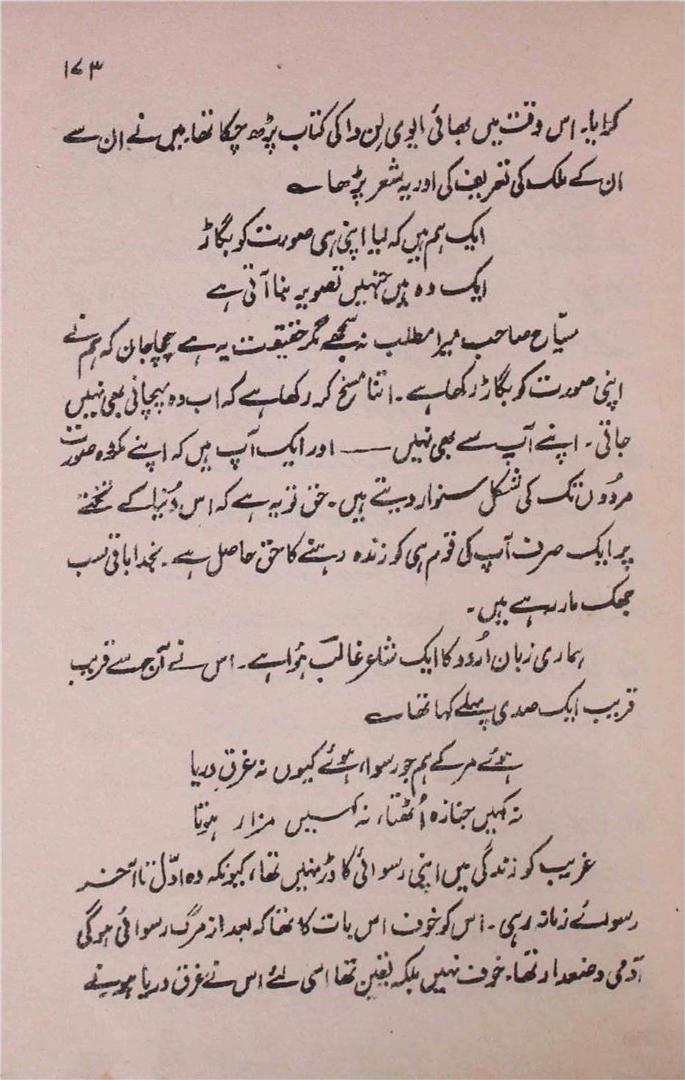 ۱۷۳
کرایا۔ اس وقت میں بھائی ایوی لن وا کی کتاب پڑھ چکا تھا۔ میں نے ان سے
ان کے ملک کی تعریف کی اور یہ شعر پڑھا ؎
ایک ہم ہیں کہ لیا اپنی ہی صورت کو بگاڑ
ایک وہ ہیں جنہیں تصویر بنا آتی ہے
سیّاح صاحب میرا مطلب نہ سمجھے مگر حقیقت یہ ہے چچا جان کہ ہم نے
اپنی صورت کو بگاڑ رکھا ہے۔ اتنا مسخ کر رکھا ہے کہ اب وہ پہچانی بھی نہیں
جاتی۔ اپنے آپ سے بھی نہیں —— اور ایک آپ ہیں کہ اپنے مکروہ صورت
مردوں تک کی شکل سنوار دیتے ہیں۔ حق تو یہ ہے کہ اس دُنیا کے تختے
پر ایک صرف آپ کی قوم ہی کو زندہ رہنے کا حق حاصل ہے۔ بخدا باقی سب
جھک مار رہے ہیں۔
ہماری زبان اُردو کا ایک شاعر غالبؔ ہُوا ہے۔ اس نے آج سے قریب
قریب ایک صدی پہلے کہا تھا ؎
ہوئے مر کے ہم جو رسوا، ہوئے کیوں نہ غرقِ دریا
نہ کہیں جنازہ اُٹھتا، نہ کہیں مزار ہوتا
غریب کو زندگی میں اپنی رسوائی کا ڈر نہیں تھا، کیونکہ وہ اوّل تا آخر
رسوائے زمانہ رہی۔ اس کو خوف اس بات کا تھا کہ بعد از مرگ رسوائی ہو گی
آدمی وضعدار تھا۔ خوف نہیں بلکہ یقین تھا اسی لئے اس نے غرقِ دریا ہونے